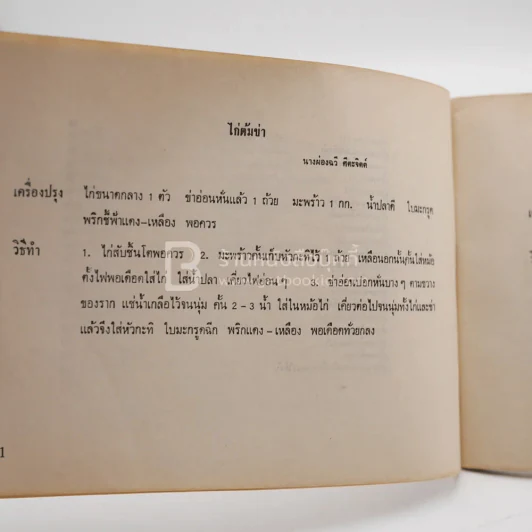 ไก่ต้มข่า
นางผ่องฉวี คีตะจิตต์
เครื่องปรุง ไก่ขนาดกลาง 1 ตัว ข่าอ่อนหั่นแล้ว 1 ถ้วย มะพร้าว 1 กก. น้ำปลาดี ใบมะกรูด
พริกชี้ฟ้าแดง-เหลือง พอควร
วิธีทำ 1. ไก่สับชิ้นโตพอควร 2. มะพร้าวคั้นเก็บหัวกะทิไว้ 1 ถ้วย เหลือนอกนั้นคั้นใส่หม้อ
ตั้งไฟพอเดือดใส่ไก่ ใส่น้ำปลา เคี่ยวไฟอ่อน ๆ 3. ข่าอ่อนปอกหั่นบาง ๆ ตามขวาง
ของราก แช่น้ำเกลือไว้จนนุ่ม คั้น 2-3 น้ำ ใส่ในหม้อไก่ เคี่ยวต่อไปจนนุ่มทั้งไก่และข่า
แล้วจึงใส่หัวกะทิ ใบมะกรูดฉีก พริกแดง-เหลือง พอเดือดทั่วยกลง
1